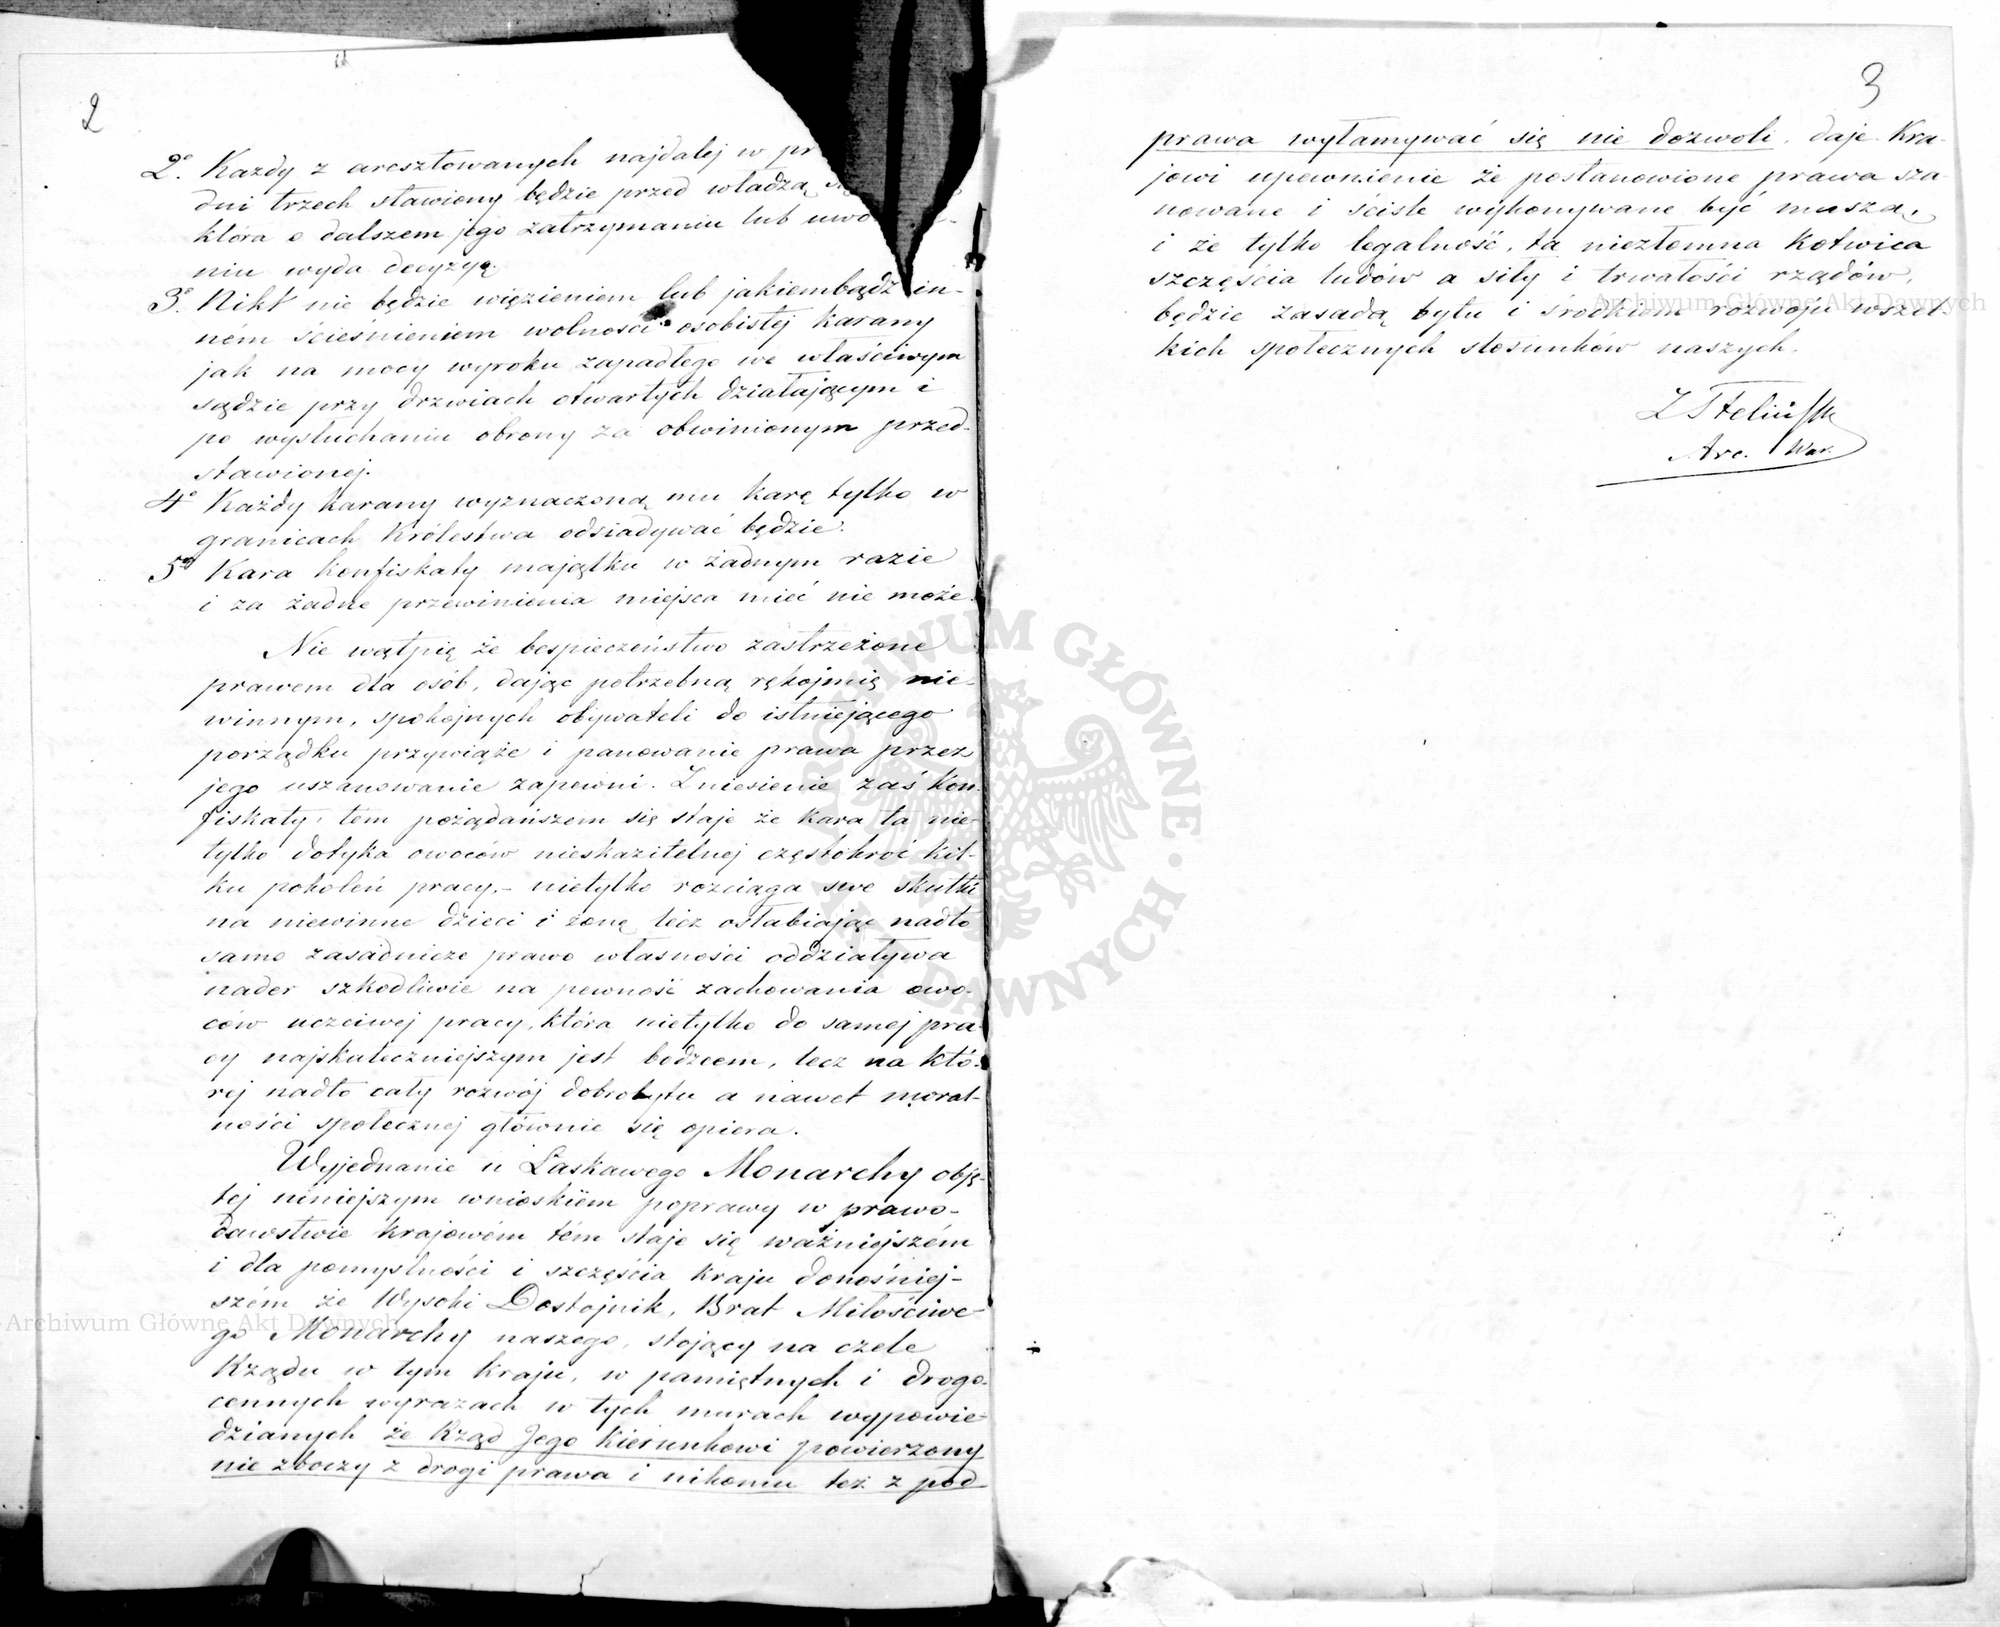 2
2° Kazdy z aresztowanych najdalej w
dni trzech stawiony będzie przed władzą
która o dalszem jego zatrzymaniu lub
niu wyda decyzyą.
3° Nikt nie będzie więzieniem lub jakiembądź in-
ném ścieśnieniem wolności osobistej karany
jak na mocy wyroku zapadłego we właściwym
sądzie przy drzwiach otwartych działającym i
po wysłuchaniu obrony za obwinionym przed-
stawionej.
4° Każdy karany wyznaczoną mu karę tylko w
granicach Królestwa odsiadywać będzie.
5° Kara konfiskaty majątku w żadnym razie
i za żadne przewinienia miejsca mieć nie może.
Nie wątpię że bespieczeństwo zastrzeżone
prawem dla osób, dając potrzebną rękojmię nie-
winnym, spokojnych obywateli do istniejącego
porządku przywiąże i panowanie prawa przez
jego uszanowanie zapewni. Zniesienie zaś kon-
fiskaty, tem pożądańszem się staje że kara ta nie-
tylko dotyka owoców nieskazitelnej częstokroć kil-
ku pokoleń pracy,- nietylko rozciąga swe skutki
na niewinne dzieci i żonę lecz osłabiając nadto
samo zasadnicze prawo własności oddziaływa
nader szkodliwie na pewność zachowania owo-
ców uczciwej pracy, która nietylko do samej pra-
cy najskuteczniejszym jest bodzcem, lecz na któ-
rej nadto cały rozwój dobrobytu a nawet moral-
ności społecznej głównie się opiera.
Wyjednanie u Łaskawego Monarchy obję-
tej niniejszym wnioskiem poprawy w prawo-
dawstwie krajowém tém staje się ważniejszém
i dla pomyslności i szczęścia kraju donośniej-
szém że Wysoki Dostojnik, Brat Miłościwe-
go Monarchy naszego, stojący na czele
Rządu w tym kraju, w pamiętnych i drogo-
cennych wyrazach w tych murach wypowie-
dzianych że Rząd Jego Kierunkowi powierzony
nie zboczy z drogi prawa i nikomu też z pod
3
prawa wyłamywać się nie dozwoli, daje Kra-
jowi upewnienie że postanowione prawa sza-
nowane i ściśle wykonywane być muszą,
i że tylko legalność, ta niezłomna kotwica
szczęścia ludów a siły i trwałości rządów,
będzie zasadą bytu i środkiem rozwoju wszel-
kich społecznych stosunków naszych.
Arc. War.
Archiwum Główne Akt Dawnych
Archiwum Główne Akt Dawnych
ARCHIWUM GŁÓWNE AKT DAWNYCH